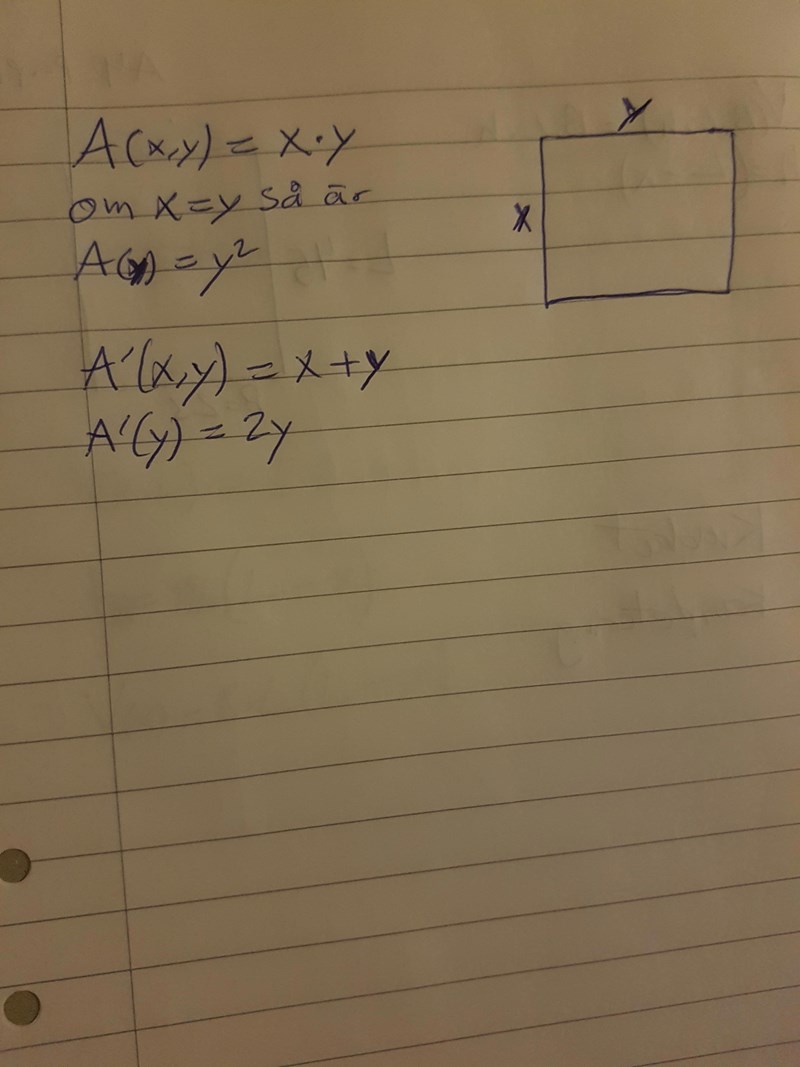 A(x,y) = x·y
om x=y så är
A(y) = y²
A'(x,y) = x+y
A'(y) = 2y
y
x